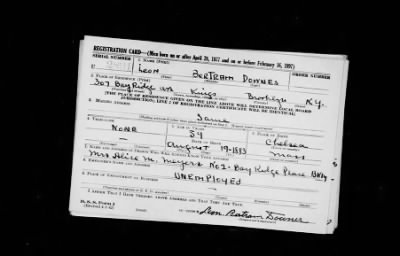 REGISTRATION CARD—(Men born on or after April 28, 1877 and on or before February 16, 1897)
SERIAL NUMBER 1. NAME (Print) ORDER NUMBER
U LEON BERTRAM DOWNES
2. PLACE OF RESIDENCE (Print)
307 Bay Ridge Ave Kings Brooklyn N.Y.
[THE PLACE OF RESIDENCE GIVEN ON THE LINE ABOVE WILL DETERMINE LOCAL BOARD
JURISDICTION; LINE 2 OF REGISTRATION CERTIFICATE WILL BE IDENTICAL]
3. MAILING ADDRESS
Same
4. TELEPHONE 5. AGE IN YEARS 6. PLACE OF BIRTH
NONE 59 Chelsea
DATE OF BIRTH
August 19-1883 Mass
7. NAME AND ADDRESS OF PERSON WHO WILL ALWAYS KNOW YOUR ADDRESS
Mrs Alice M. Meyers No 2- Bay Ridge Place Bklyn
8. EMPLOYER'S NAME AND ADDRESS
UNEMPLOYED
9. PLACE OF EMPLOYMENT OR BUSINESS
I AFFIRM THAT I HAVE VERIFIED ABOVE ANSWERS AND THAT THEY ARE TRUE.
D. S. S. Form 1
(Revised 4-1-42)
Leon Bertram Downes